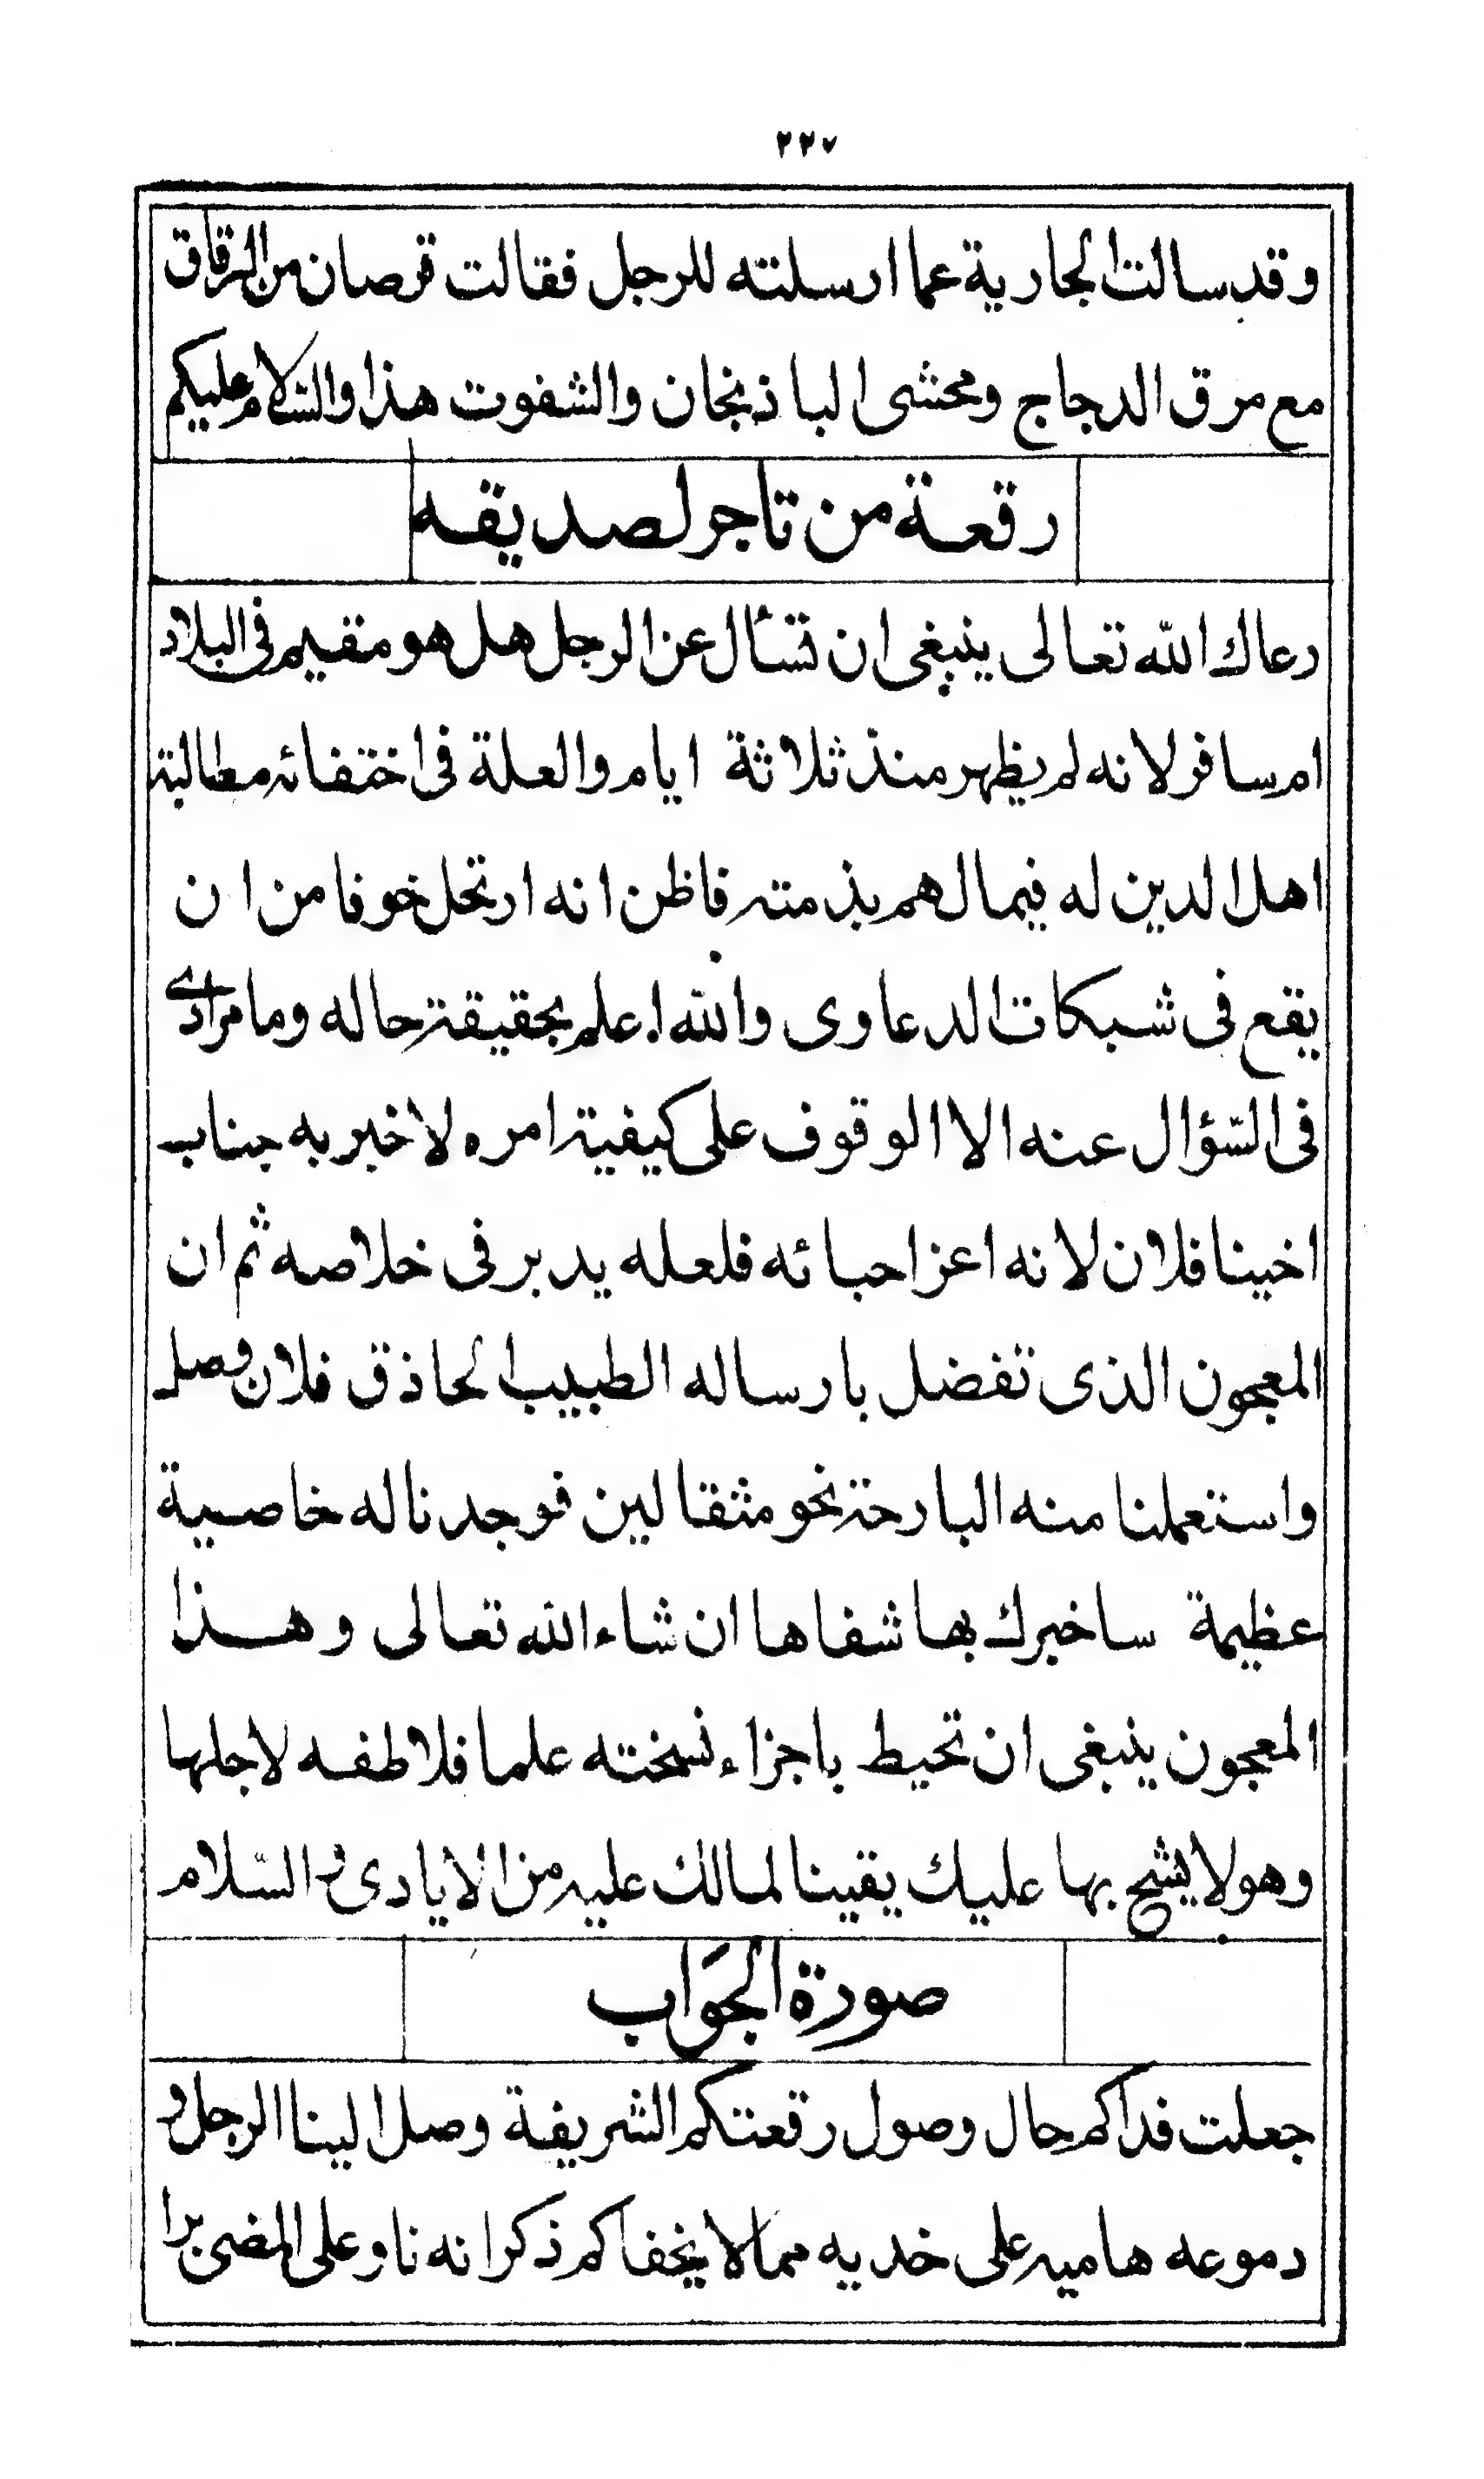 ٢٢٧
وقد سالت الجارية عما ارسلته للرجل فقالت قرصان من الرقاق
مع مرق الدجاج ومحشى الباذنجان والشفوت هذا والسّلام عليكم
رقعة من تاجر لصديقه
رعاك اللّه تعالى ينبغى ان تسأل عن الرجل هل هو مقيم فى البلاد
ام سافر لانه لم يظهر منذ ثلاثة ايام والعلة فى اختفائه مطالبة
اهل الدين له فيما لهم بذمته فاظن انه ارتحل خوفا من ان
يقع فى شبكات الدعاوى واللّه اعلم بحقيقة حاله وما مرادى
فى السّؤال عنه الا الوقوف على كيفية امره لاخبر به جناب
اخينا فلان لانه اعز احبائه فلعله يدبر فى خلاصه ثم ان
المعجون الذى تفضل بارساله الطبيب الحاذق فلان وصل
واستعملنا منه البارحة نحو مثقالين فوجدنا له خاصية
عظيمة ساخبرك بها شفاها ان شاء اللّه تعالى وهذا
المعجون ينبغى ان تحيط باجزاء نسخته علما فلاطفه لاجلها
وهو لا يشح بها عليك يقينا لمالك عليه من الايادى والسّلام
صورة الجَواب
جعلت فداكم حال وصول رقعتكم الشريفة وصل الينا الرجل و
دموعه هاميه على خديه مما لا يخفاكم ذكر انه ناو على المضى برا